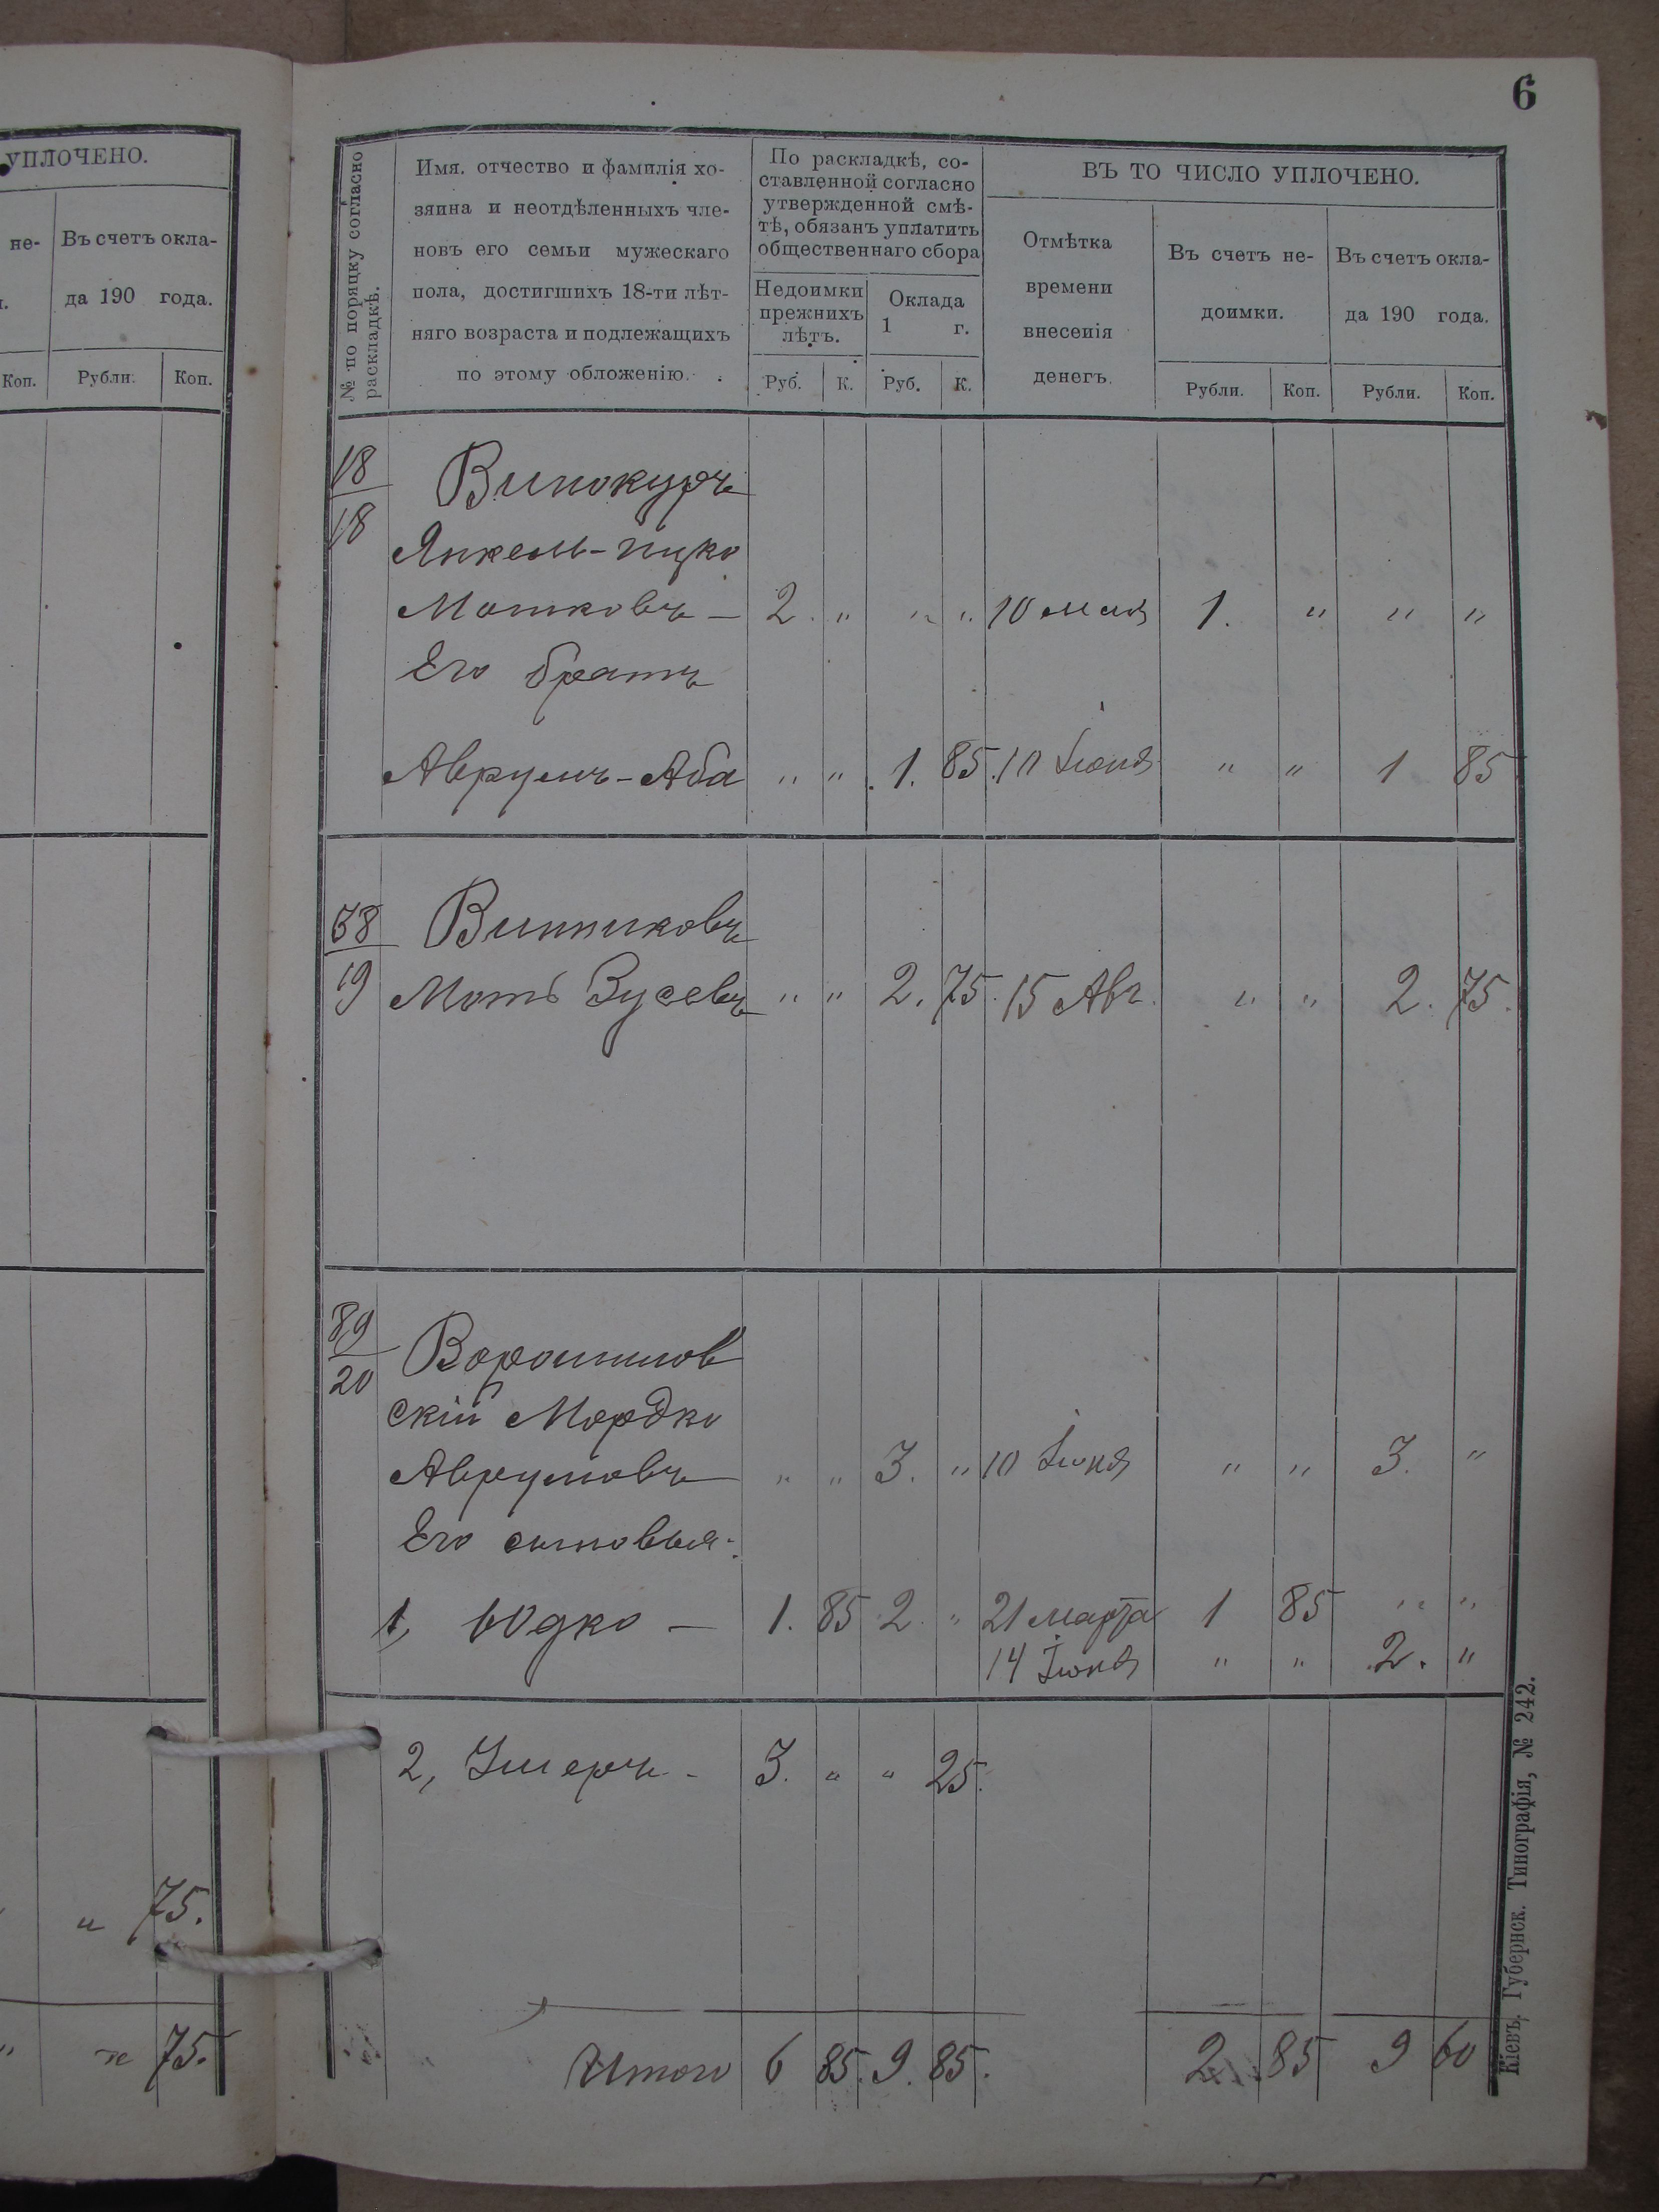 УПЛОЧЕНО.
не-
Въ счетъ окла-
да 190 года.
Коп.
Рубли.
Коп.
„ 75.
„ 75.
6
№ по порядку согласно
раскладкѣ.
Имя, отчество и фамилія хо-
зяина и неотдѣленныхъ чле-
новъ его семьи мужескаго
пола, достигшихъ 18-ти лѣт-
няго возраста и подлежащихъ
по этому обложенію.
По раскладкѣ, со-
ставленной согласно
утвержденной смѣ-
тѣ, обязанъ уплатить
общественнаго сбора
Недоимки
прежнихъ
лѣтъ.
Оклада
1 г.
Руб.
К.
Руб.
К.
ВЪ ТО ЧИСЛО УПЛОЧЕНО.
Отмѣтка
времени
внесенія
денегъ.
Въ счетъ не-
доимки.
Въ счетъ окла-
да 190 года.
Рубли.
Коп.
Рубли.
Коп.
18 Винокуръ
18
Янкель-Ицко
Мошковъ — 2. „ „ „ 10 мая 1. „ „ „
Его братъ
Аврумъ-Аба „ „ 1. 85. 10 Іюня „ „ 1 85
38 Винниковъ
19 Моть Зусевъ „ „ 2. 75. 15 Авг. „ „ 2. 75.
89
20 Ворошилов
скій Мордко
Аврумовъ „ „ 3. „ 10 Іюня „ „ 3. „
Его сыновья:
1, Юдко — 1. 85 2. „ 21 марта 1 85 „ „
14 Іюня „ „ 2. „
2, Умеръ - 3. „ „ 25.
Итого 6 85. 9. 85. 2 85 9 60
Кіевъ, Губернск. Типографія, № 242.